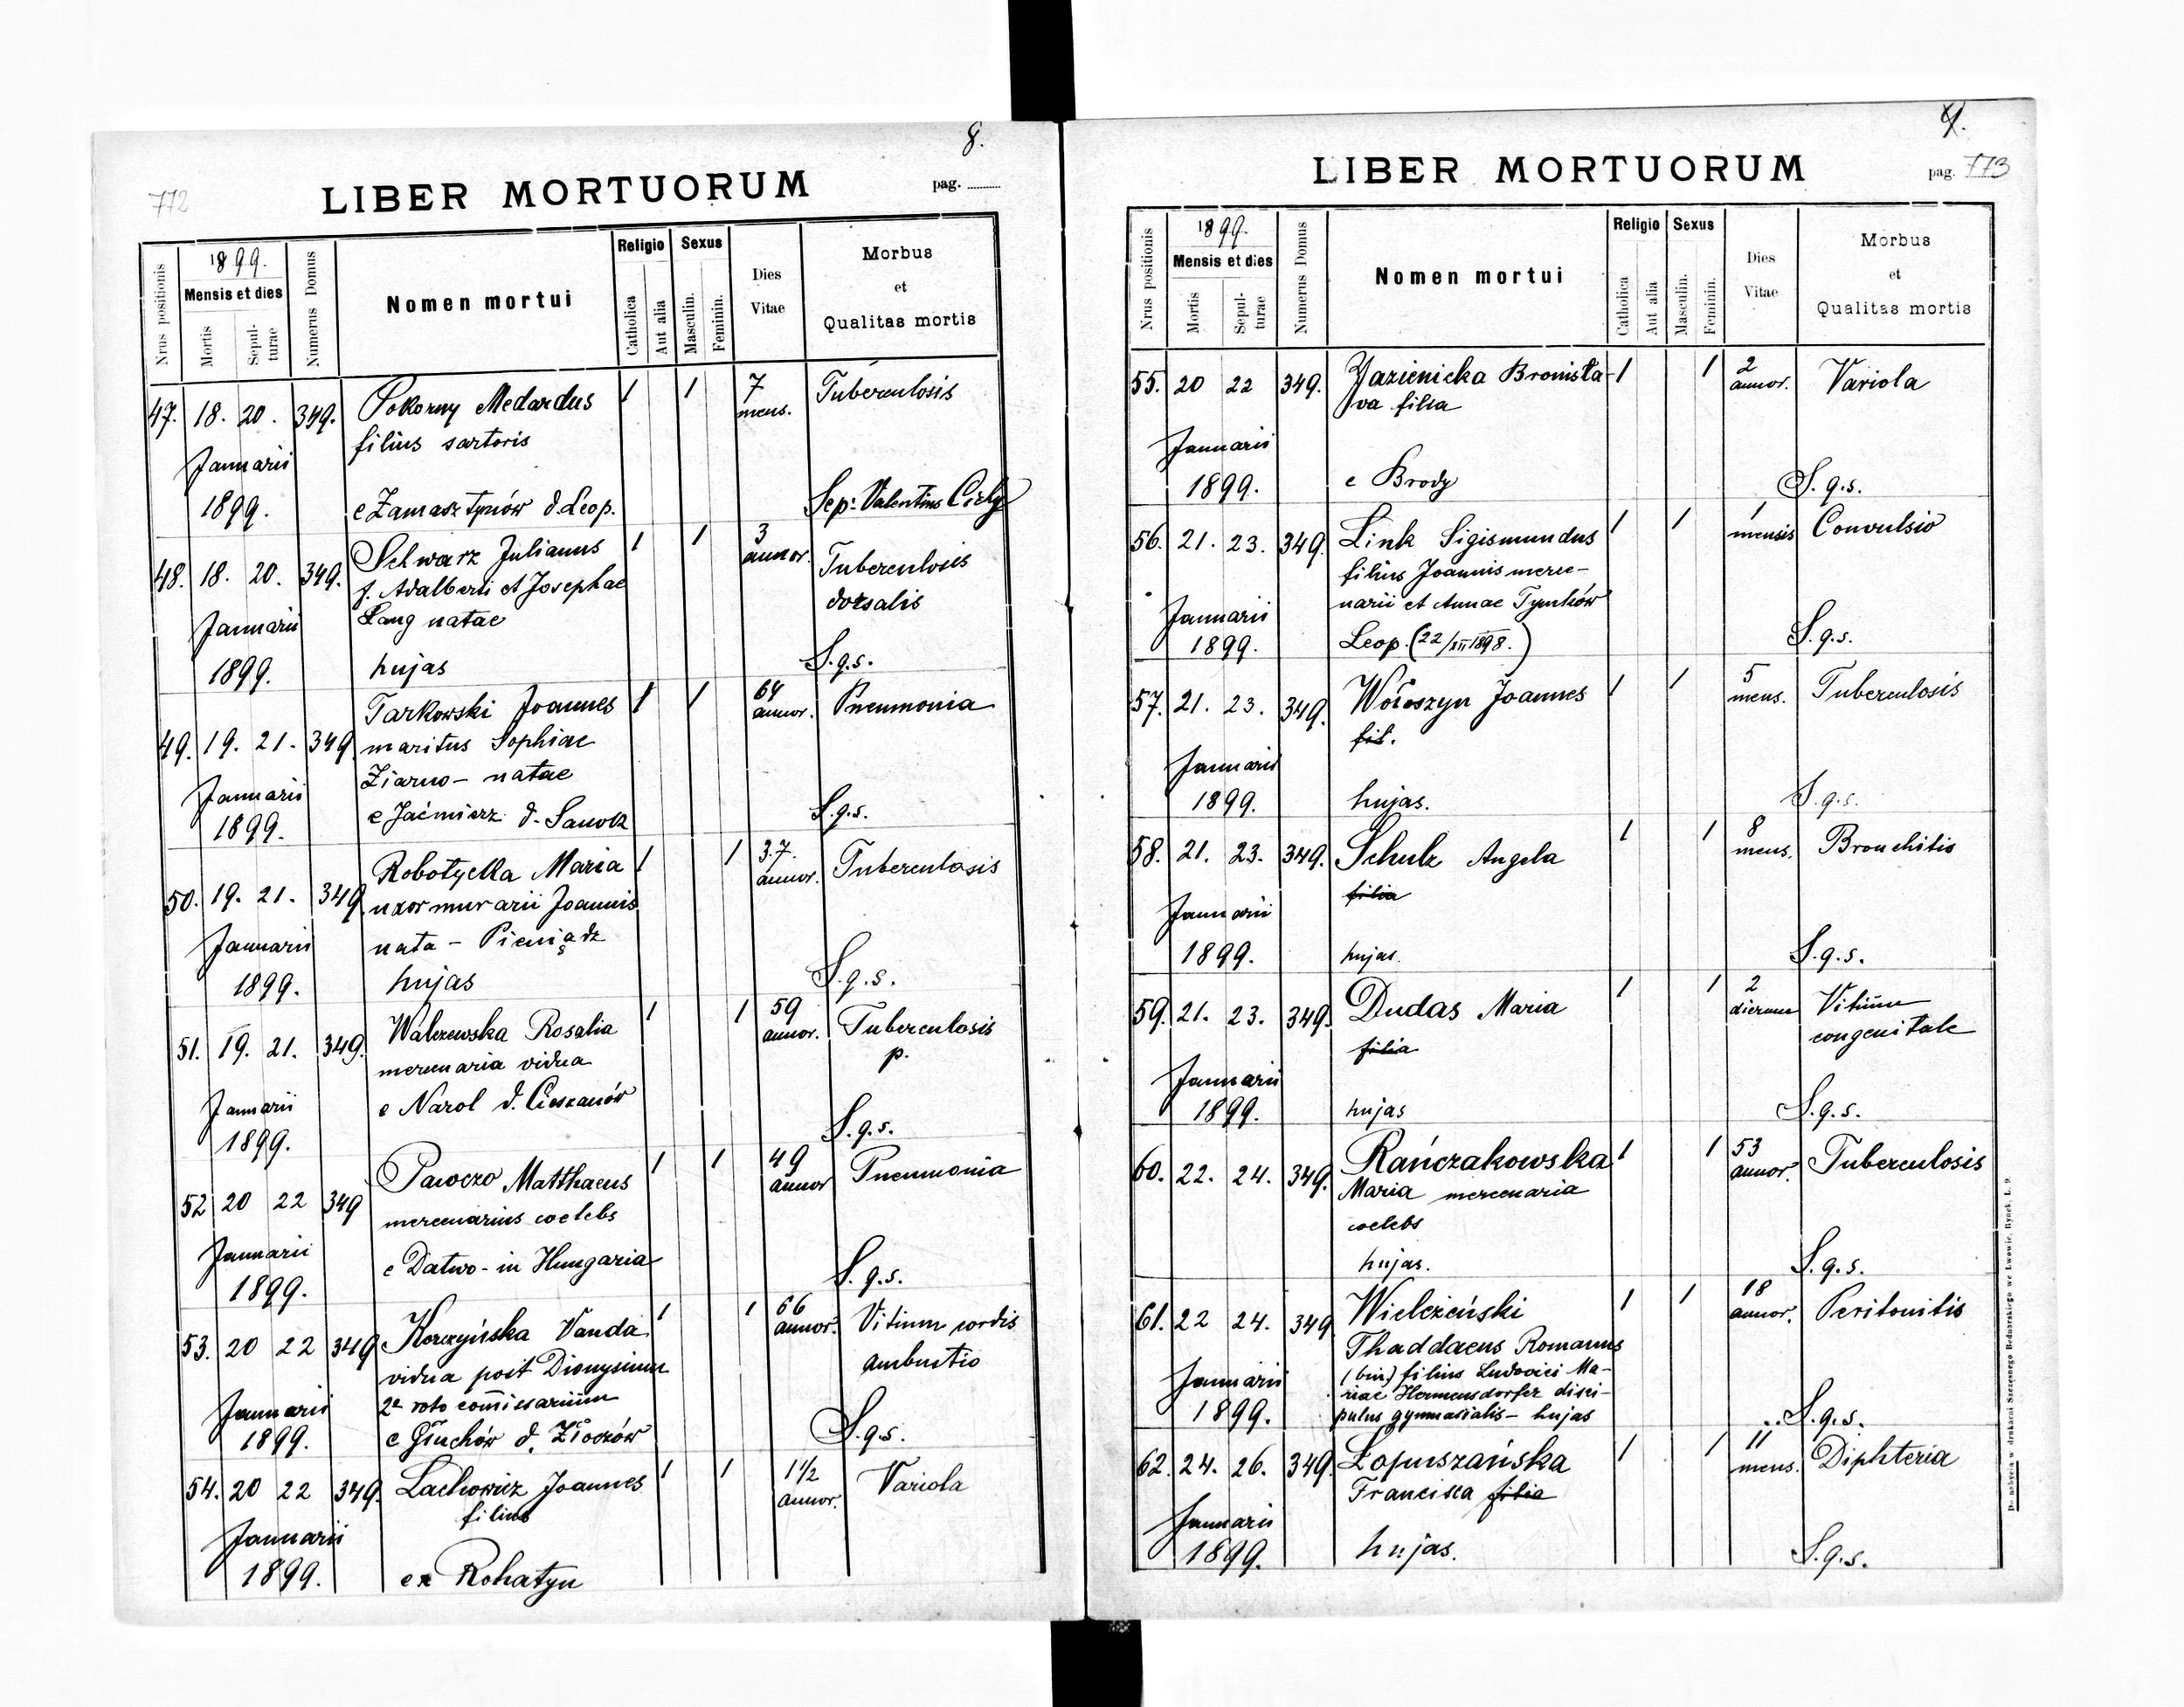 8.
772
LIBER MORTUORUM
pag.
Nrus positionis
1899.
Mensis et dies
Mortis
Sepul-
turae
Numerus Domus
Nomen mortui
Religio
Catholica
Aut alia
Sexus
Masculin.
Feminin.
Dies
Vitae
Morbus
et
Qualitas mortis
47. 18. 20. 349. Pokorny Medardus 1 1 7 mens. Tuberculosis
filius sartoris
Januarii
1899. e Zamasztynów d. Leop. Sep: Valentinus
48. 18. 20. 349. Schwarz Julianus 1 1 3 annor. Tuberculosis
f. Adalberti et Josephae dorsalis
Januarii Lang natae
1899. hujas S.g.s.
49. 19. 21. 349 Tarkowski Joannes 1 1 64 annor. Pneumonia
maritus Sophiae
Ziarno - natae
Januarii
1899. e Jaćmierz d. Sanok S.g.s.
50. 19. 21. 349 Robotycka Maria 1 1 37. annor. Tuberculosis
uxor murarii Joannis
Januarii nata - Pieniądz
1899. hujas S.g.s.
51. 19. 21. 349. Walczewska Rosalia 1 1 59 annor. Tuberculosis
mercenaria vidua p.
Januarii e Narol d. Cieszanów
1899. S.g.s.
52 20 22 349 Pawczo Matthaeus 1 1 49 annor Pneumonia
mercenarius coelebs
Januarii e Datwo - in Hungaria
1899. S.g.s.
53. 20 22 349 Korczyńska Vanda 1 1 66 annor. Vitium cordis
vidua post Dionysium ambustio
Januarii 2º voto comissarium
1899. e Głuchów d. Złoczów S.g.s.
54. 20 22 349. Lachowicz Joannes 1 1 1½ annor. Variola
filius
Januarii
1899. ex Rohatyn
9.
LIBER MORTUORUM
pag. 773
Nrus positionis
1899.
Mensis et dies
Mortis
Sepul-
turae
Numerus Domus
Nomen mortui
Religio
Catholica
Aut alia
Sexus
Masculin.
Feminin.
Dies
Vitae
Morbus
et
Qualitas mortis
55. 20 22 349. Jazienicka Bronisła- 1 1 2 annor. Variola
va filia
Januarii
1899. e Brody S.g.s.
56. 21. 23. 349 Link Sigismundus 1 1 1 mensis Convulsio
filius Joannis merce-
Januarii narii et Annae Tymków
1899. Leop. (22/XII 1898.) S.g.s.
57. 21. 23. 349. Wołoszyn Joannes 1 1 5 mens. Tuberculosis
fil.
Januarii
1899. hujas. S.g.s.
58. 21. 23. 349. Schulz Angela 1 1 8 mens. Bronchitis
filia
Januarii
1899. hujas. S.g.s.
59. 21. 23. 349. Dudas Maria 1 1 2 dierum Vitium
filia congenitale
Januarii
1899. hujas S.g.s.
60. 22. 24. 349. Rańczakowska 1 1 53 annor. Tuberculosis
Maria mercenaria
coelebs
hujas. S.g.s.
61. 22 24. 349 Wielczeński 1 1 18 annor. Peritonitis
Thaddaeus Romanus
Januarii (bin) filius Ludovici Ma-
riae Hermensdorfer disci-
1899. pulus gymnasialis - hujas S.g.s.
62. 24. 26. 349. Łopuszańska 1 1 11 mens. Diphteria
Francisca filia
Januarii
1899. hujas. S.g.s.
Do nabycia w drukarni Szczęsnego Bednarskiego we Lwowie, Rynek L. 9.